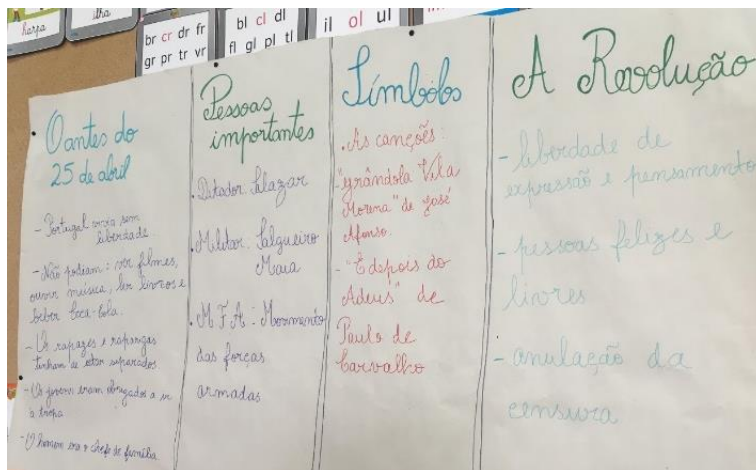 harpa
ilha
br cr dr fr
gr pr tr vr
bl cl dl
fl gl pl tl
il ol ul
O antes do
25 de abril
- Portugal vivia sem
liberdade.
- Não podiam: ver filmes,
ouvir música, ler livros e
beber Coca-Cola.
- Os rapazes e raparigas
tinham de estar separados
- Os jovens eram obrigados a ir
à tropa
- O homem era o chefe de família
Pessoas
importantes
. Ditador: Salazar
. Militar: Salgueiro
Maia
. M F A: Movimento
das forças
armadas
Símbolos
. As canções:
"grândola Vila
Morena" de José
Afonso.
- "E depois do
Adeus" de
Paulo de
Carvalho
A Revolução
- liberdade de
expressão e pensamento
- pessoas felizes e
livres
- anulação da
censura